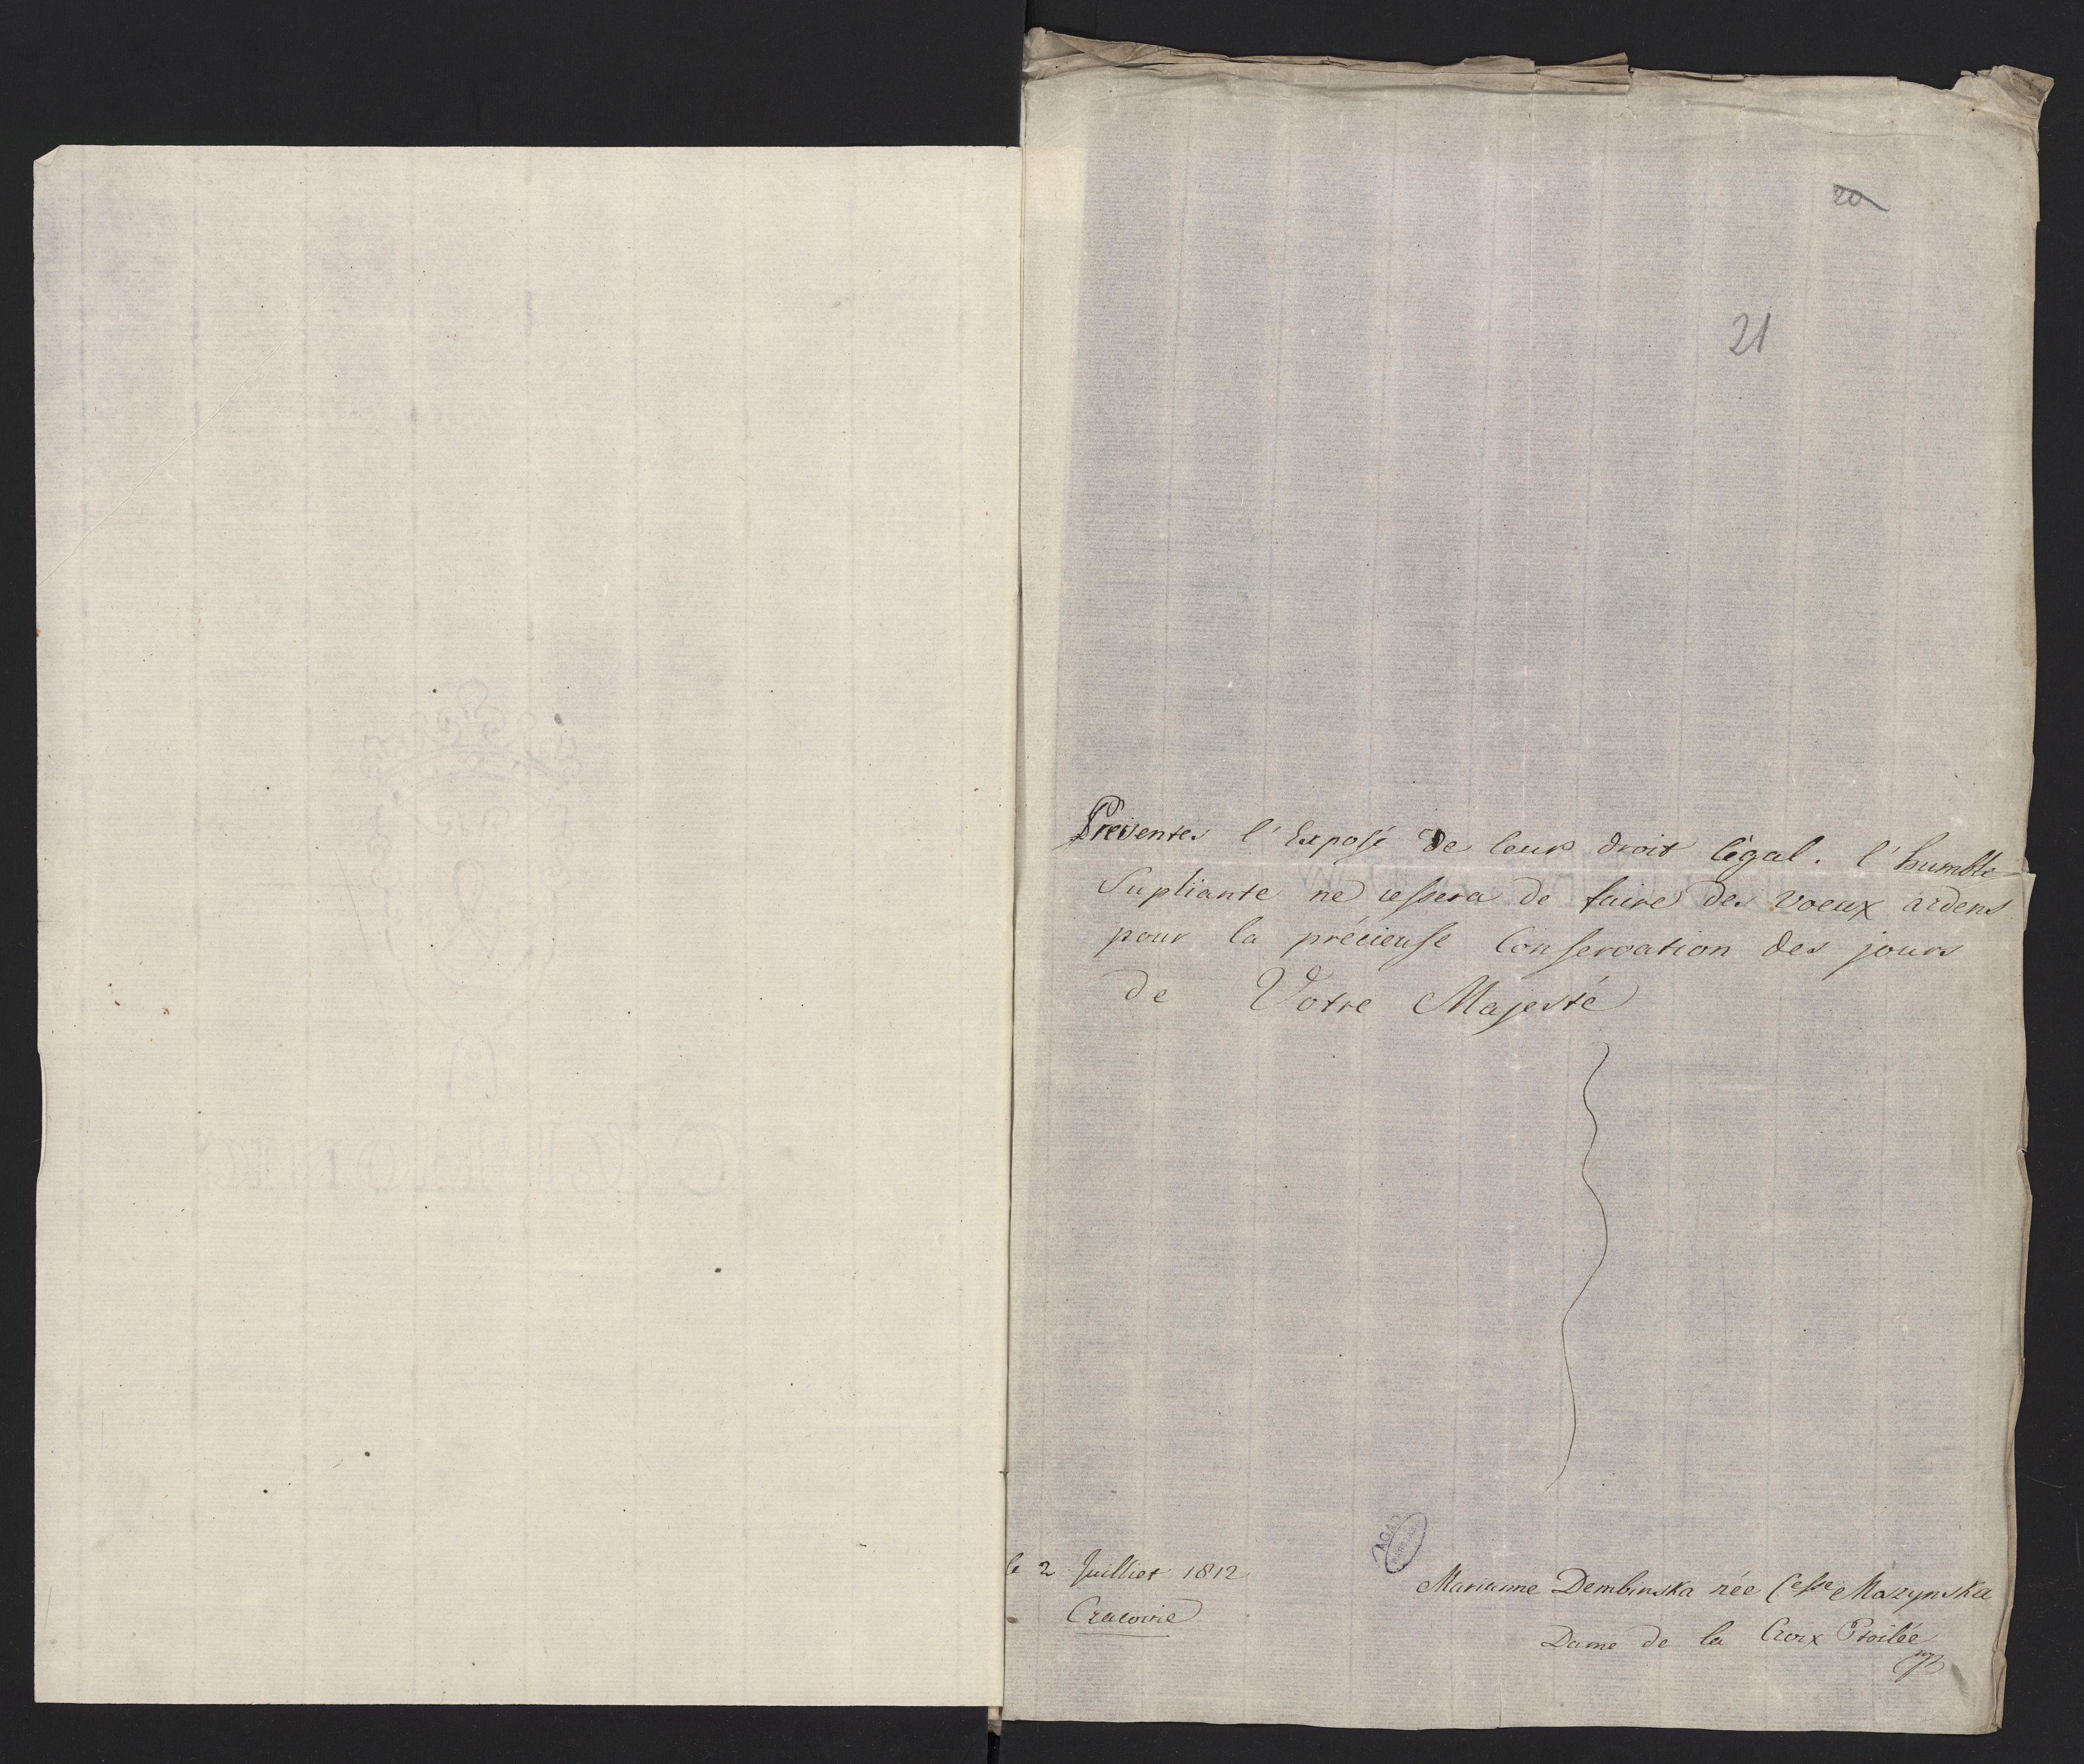 20
21
Presentes l'Exposé de leurs droit légal. l'humble
Supliante ne cessera de faire des voeux ardens
pour la précieuse Conservation des jours
de Votre Majesté
le 2 Juilliet 1812
Cracovie
AGAD
Marianne Dembinska née Cesse Moszynska
Dame de la Croix Etoilée